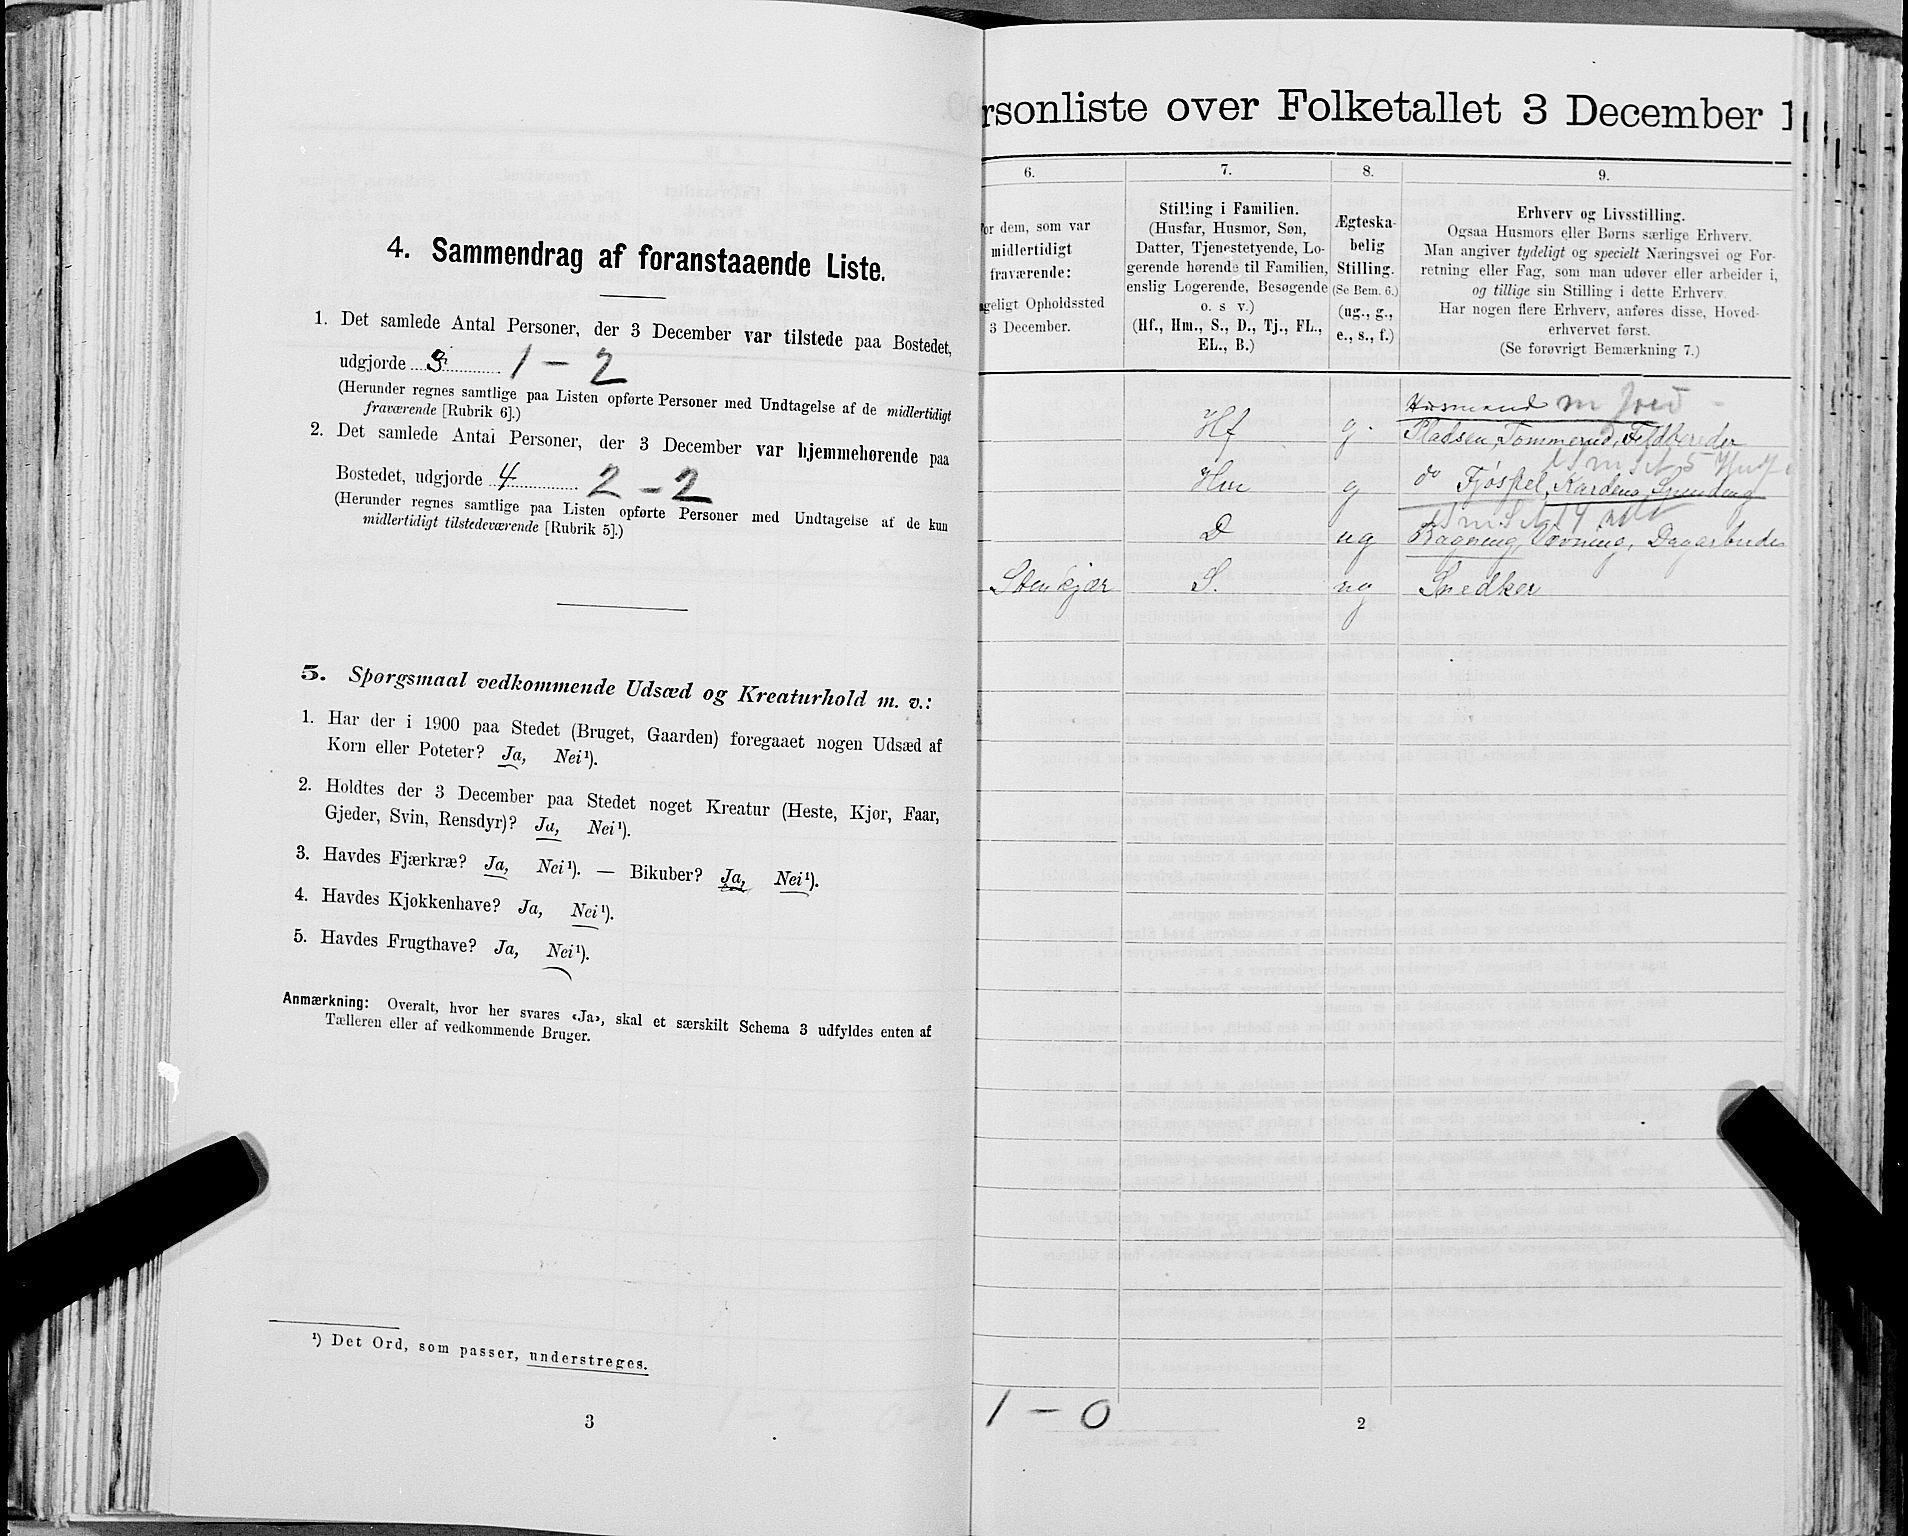 4. Sammendrag af foranstaaende Liste.
1. Det samlede Antal Personer, der 3 December var tilstede paa Bostedet,
udgjorde 3 1 – 2
(Herunder regnes samtlige paa Listen opførte Personer med Undtagelse af de midlertidigt
fraværende [Rubrik 6].)
2. Det samlede Antal Personer, der 3 December var hjemmehørende paa
Bostedet, udgjorde 4 2 – 2
(Herunder regnes samtlige paa Listen opførte Personer med Undtagelse af de kun
midlertidigt tilstedeværende [Rubrik 5].)
5. Spørgsmaal vedkommende Udsæd og Kreaturhold m. v.:
1. Har der i 1900 paa Stedet (Bruget, Gaarden) foregaaet nogen Udsæd af
Korn eller Poteter? Ja, Nei¹).
2. Holdtes der 3 December paa Stedet noget Kreatur (Heste, Kjør, Faar,
Gjeder, Svin, Rensdyr)? Ja, Nei¹).
3. Havdes Fjærkræ? Ja, Nei¹). — Bikuber? Ja, Nei¹).
4. Havdes Kjøkkenhave? Ja, Nei¹).
5. Havdes Frugthave? Ja, Nei¹).
Anmærkning: Overalt, hvor her svares «Ja», skal et særskilt Schema 3 udfyldes enten af
Tælleren eller af vedkommende Bruger.
¹) Det Ord, som passer, understreges.
3
rsonliste over Folketallet 3 December 1
6.
or dem, som var
midlertidigt
fraværende:
geligt Opholdssted
3 December.
7.
Stilling i Familien.
(Husfar, Husmor, Søn,
Datter, Tjenestetyende, Lo-
gerende hørende til Familien,
enslig Logerende, Besøgende
o. s v.)
(Hf., Hm., S., D., Tj., FL.,
EL., B.)
8.
Ægteska-
belig
Stilling.
(Se Bem. 6.)
(ug., g.,
e., s., f.)
9.
Erhverv og Livsstilling.
Ogsaa Husmors eller Børns særlige Erhverv.
Man angiver tydeligt og specielt Næringsvei og For-
retning eller Fag, som man udøver eller arbeider i,
og tillige sin Stilling i dette Erhverv
Har nogen flere Erhverv, anføres disse, Hoved-
erhvervet først.
(Se forøvrigt Bemærkning 7.)
Husmand m Jord
Hf g. Pladsen, Tømmerud, Feldbereder
Hm g do Fjøsstel, Karding, Spinding
D ug Bagning, Vævning, Dagarbeide
Stenkjær S. ug Snedker
1 – 0
2